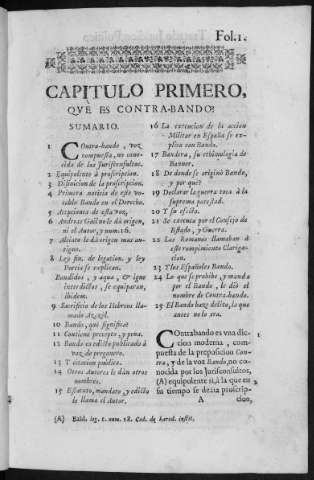 Fol.1.
CAPITULO PRIMERO,
QUÈ ES CONTRA-BANDO?
SUMARIO.
1 Contra-bando, voz
compuesta, no conocida
de los Jurisconsultos.
2 Equipolente à proscripcion.
3 Difinicion de la proscripcion.
4 Primera noticia de este vocablo
Bando en el Derecho.
5 Acepciones de esta voz,
6 Andreas Gail no le dà origen,
ni el Autor, y num. 16.
7 Alciato le dà origen mas antiguo.
8 Ley sin. de legation. y ley
Portia se explican.
Bandidos, y aqua, & igne
interdictos, se equiparan,
ibidem.
9 Sacrificio de los Hebreos llamado
Azazèl.
10 Bando, què significa?
11 Contiene precepto, y pena.
12 Bando es edicto publicado à
voz de pregonero.
13 Y citacion publica.
14 Otros Autores le dàn otros
nombres.
15 Estatuto, mandato, y edicto
le llama el Autor.
16 La execucion de la accion
Militar en España se explica
con Bando.
17 Bandera, su ethimologia de
Banner.
18 De donde se originò Bando,
y por què?
19 Declarar la guerra toca à la
suprema potestad.
20 Y su efecto.
21 Se comunica por el Consejo de
Estado, y Guerra.
22 Los Romanos llamaban à
este rompimiento Clarigacion.
23 Y los Españoles Bando.
24 Lo que se prohibe, y manda
por el Bando, le diò el
nombre de Contra-bando.
25 El Bando haze delito, lo que
antes no lo era.
Contrabando es una diccion
moderna, compuesta
de la preposicion Contra,
y de la voz Bando, no conocida
por los Jurisconsultos,
(A) equipolente sì, à la que en
su tiempo se dezia proscrip-
A cion,
(A) Bald. leg. 1. num. 18. Cod. de hæred. instit.